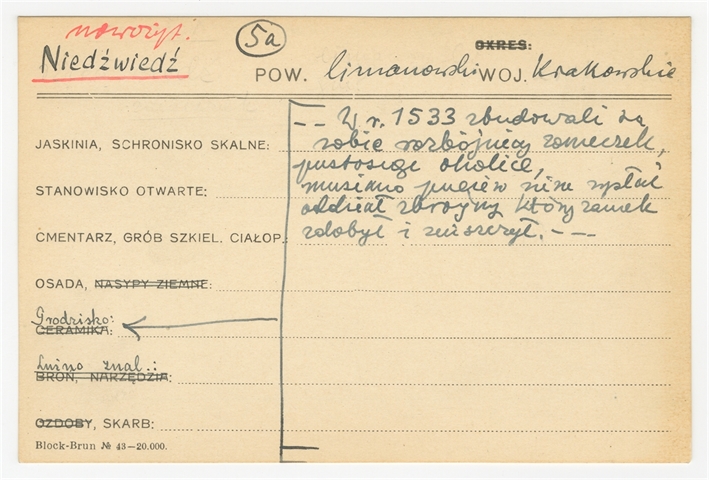 nowożyt.
5a
OKRES:
Niedźwiedź
POW. limanowski WOJ. Krakowskie
-- W r. 1533 zbudowali tu
sobie rozbójnicy zameczek,
JASKINIA, SCHRONISKO SKALNE:
pustosząc okolicę,
musiano przeciw nim wysłać
STANOWISKO OTWARTE:
oddział zbrojny, który zamek
CMENTARZ, GRÓB SZKIEL. CIAŁOP.:
zdobył i zniszczył. --
OSADA, NASYPY ZIEMNE:
Grodzisko:
CERAMIKA:
Luźno znal.:
BROŃ, NARZĘDZIA:
OZDOBY, SKARB:
Block-Brun № 43—20.000.